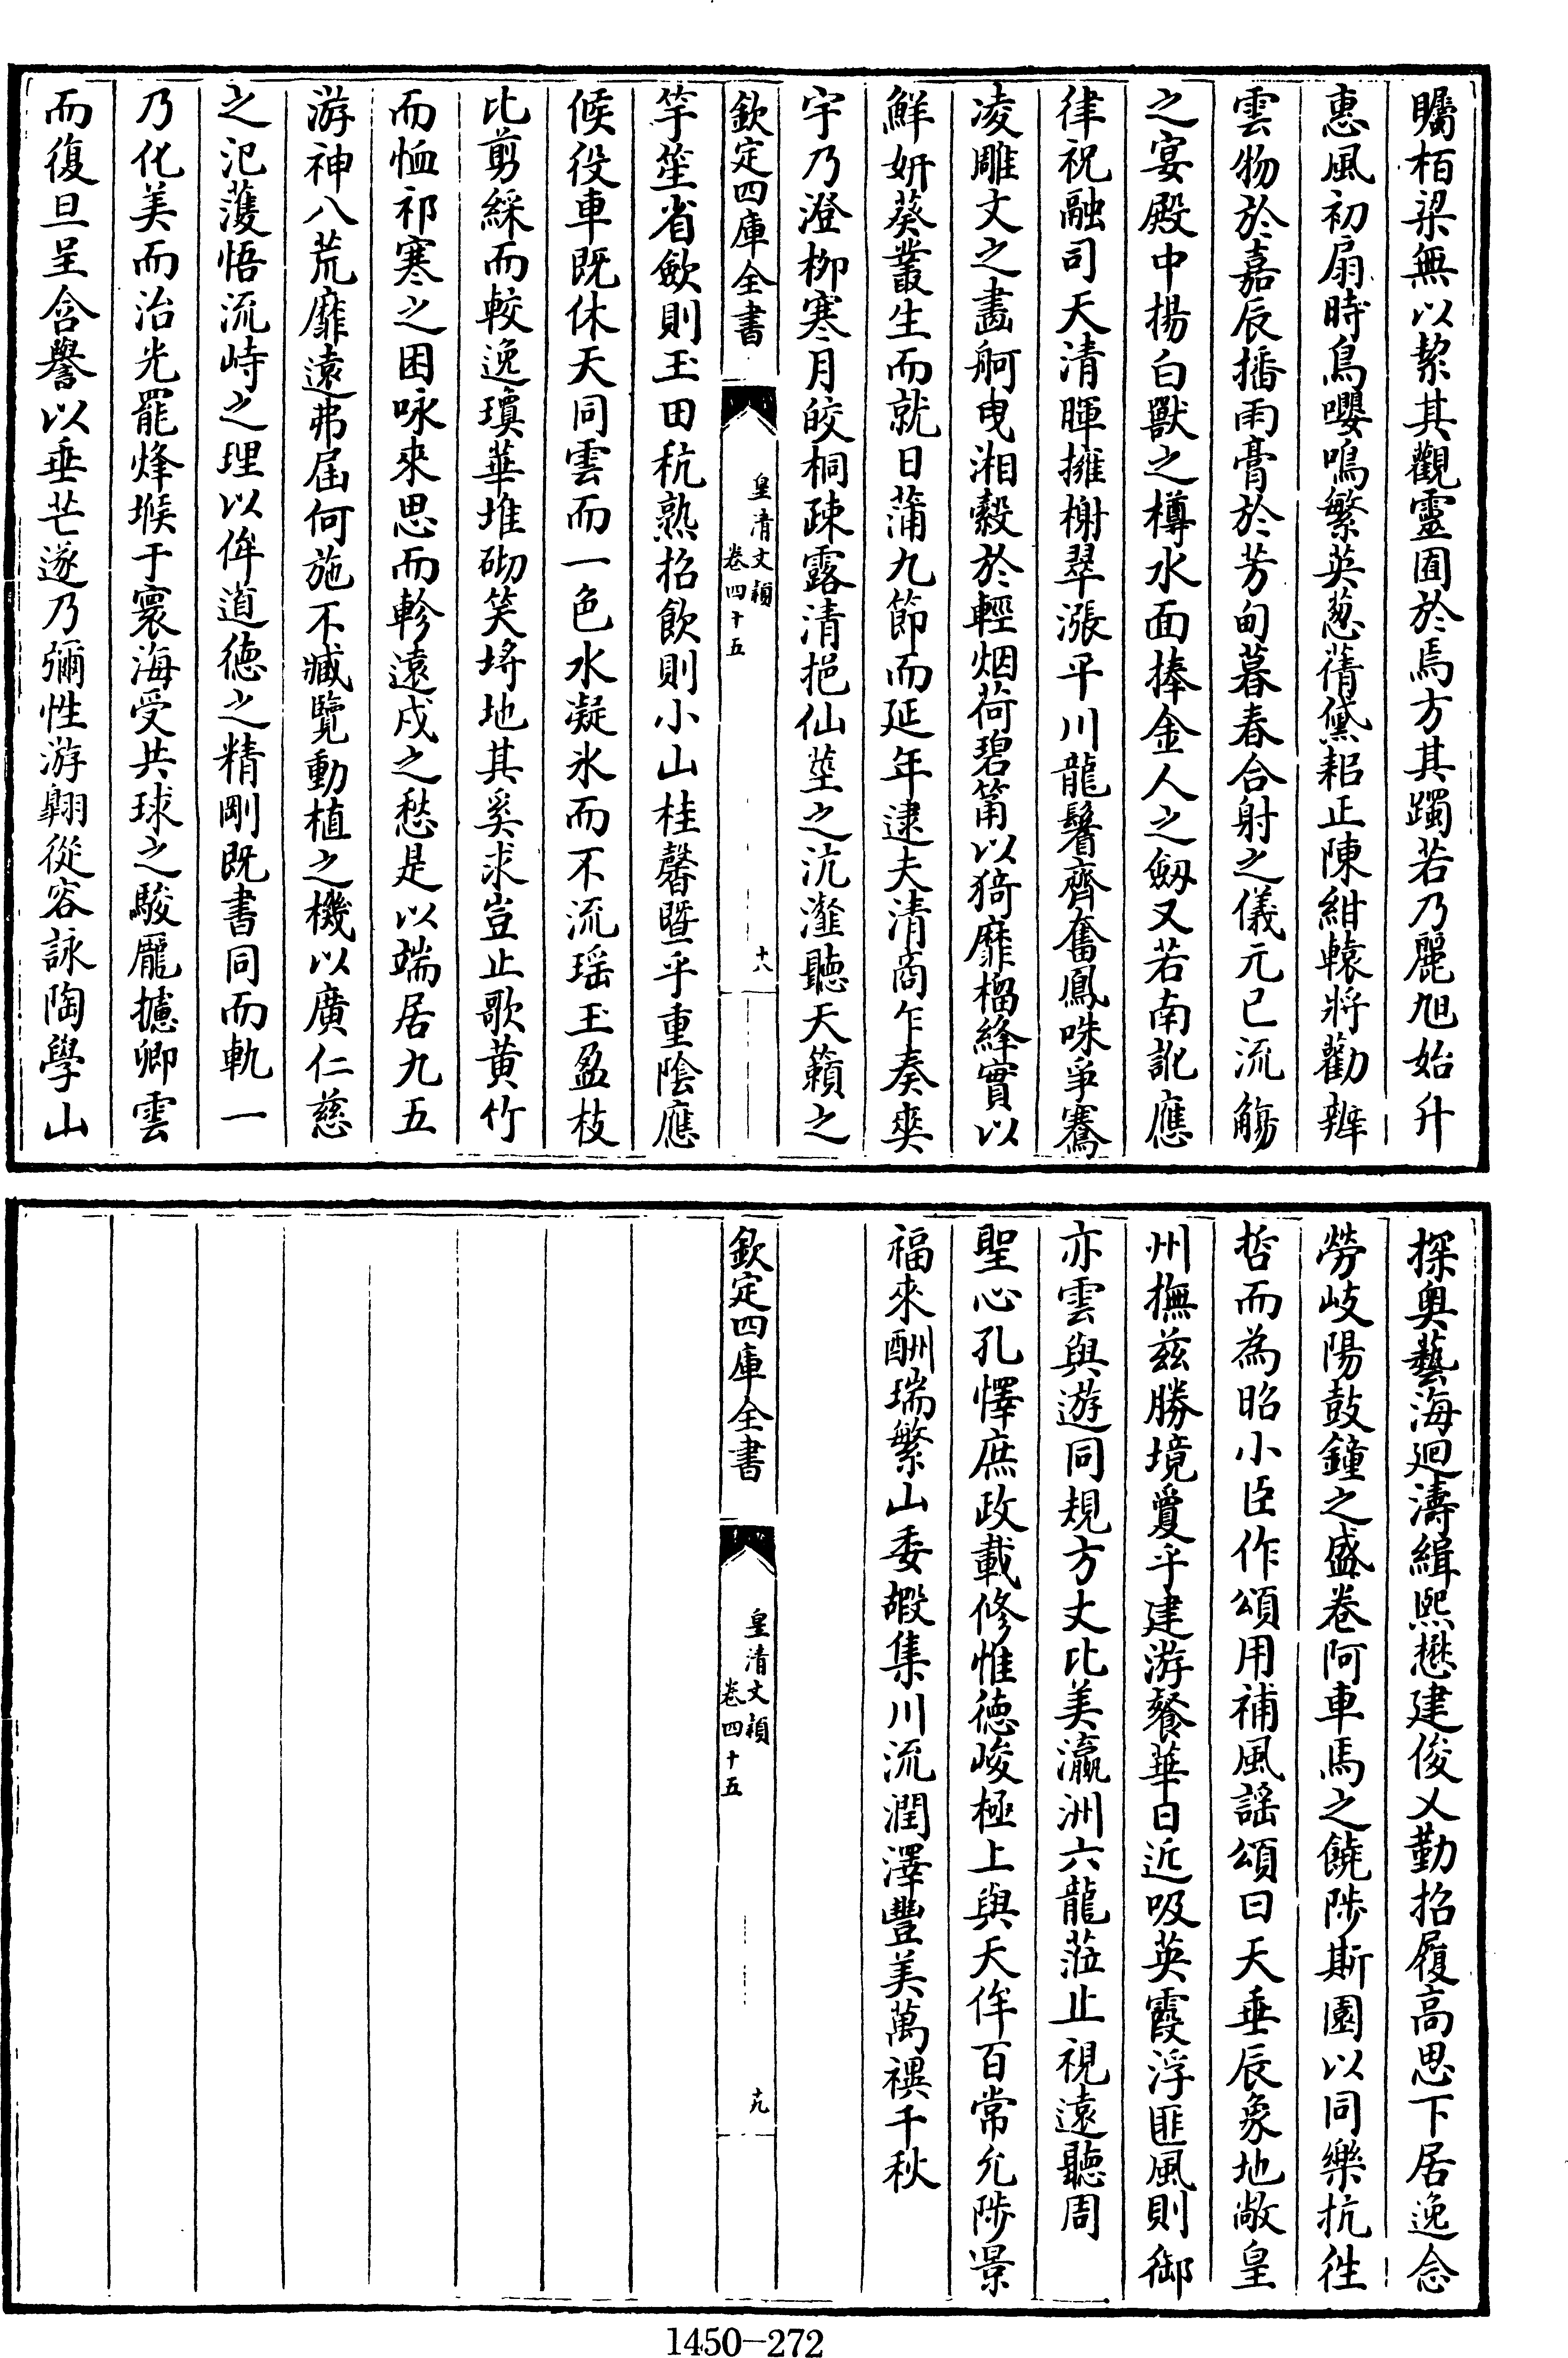 矚栢梁無以絜其觀靈囿於焉方其躅若乃麗旭始升
惠風初扇時鳥嚶鳴繁英葱蒨黛耜正陳紺轅將勸辨
雲物於嘉辰播雨膏於芳甸暮春合射之儀元巳流觴
之宴殿中揚白獸之樽水面捧金人之劔又若南訛應
律祝融司天清暉擁榭翠漲平川龍鬐齊奮鳳咮爭騫
凌雕文之畵舸曳湘縠於輕烟荷碧筩以猗靡榴絳實以
鮮妍葵叢生而就日蒲九節而延年逮夫清商乍奏奕
宇乃澄栁寒月皎桐疎露清挹仙莖之沆瀣聽天籟之
欽定四庫全書
皇清文穎
卷四十五
十八
竽笙省斂則玉田秔熟招飲則小山桂馨暨乎重陰應
候役車既休天同雲而一色水凝氷而不流瑶玉盈枝
比剪綵而較逸瓊華堆砌笑埓地其奚求豈止歌黄竹
而恤祁寒之困咏來思而軫遠戍之愁是以端居九五
游神八荒靡遠弗届何施不臧覽動植之機以廣仁慈
之氾濩悟流峙之理以侔道德之精剛既書同而軌一
乃化美而治光罷烽堠于寰海受共球之駿厖攄卿雲
而復旦呈含譽以垂芒遂乃彌性游翺從容詠陶學山
探奥藝海廻濤緝熙懋建俊乂勤招履高思下居逸念
勞岐陽鼓鐘之盛卷阿車馬之饒陟斯園以同樂抗徃
哲而為昭小臣作頌用補風謡頌曰天垂辰象地敞皇
州撫兹勝境爰乎建游餐華日近吸英霞浮匪風則御
亦雲與遊同規方丈比美瀛洲六龍蒞止視遠聽周
聖心孔懌庶政載修惟德峻極上與天侔百常允陟景
福來酬瑞繁山委嘏集川流潤澤豐美萬禩千秋
欽定四庫全書
皇清文穎
卷四十五
十九
1450-272